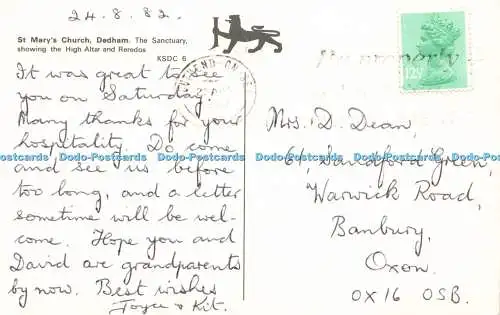 24.8.82.
St Mary's Church, Dedham. The Sanctuary,
showing the High Altar and Reredos
KSDC 6
It was great to see
you on Saturday.
Many thanks for your
hospitality. Do come
and see us before
too long, and a letter
sometime will be wel-
come. Hope you and
David are grandparents
by now. Best wishes
Joyce & Kit.
12½
Mrs. D. Dean,
61, Sandford Green,
Warwick Road,
Banbury,
Oxon.
OX16 OSB.
Dodo-Postcards Dodo-Postcards Dodo-Postcards Dodo-Postcards Dodo-Postcards